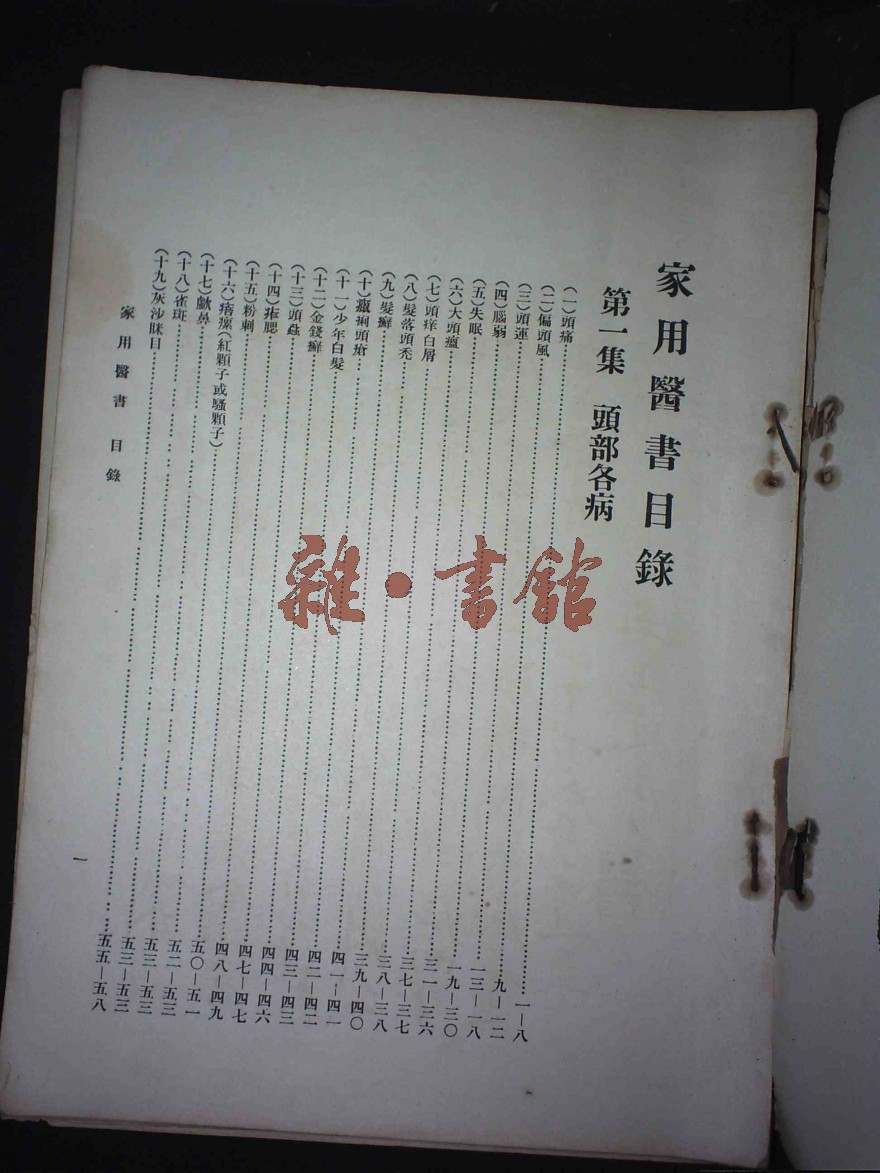 家用醫書目錄
第一集 頭部各病
(一)頭痛……一—八
(二)偏頭風……九—一二
(三)頭運……一三—一八
(四)腦弱……一九—三〇
(五)失眠……三一—三六
(六)大頭瘟……三七—三七
(七)頭痒白屑……三八—三八
(八)髮落頭禿……三九—四〇
(九)髮癬……四一—四一
(十)癩痢頭瘡……四二—四二
(十一)少年白髮……四三—四三
(十二)金錢癬……四四—四六
(十三)頭蝨……四七—四七
(十四)痄腮……四八—四九
(十五)粉刺……五〇—五一
(十六)痦㿔(紅顆子或騷顆子)……五二—五三
(十七)齇鼻……五三—五三
(十八)雀斑……五三—五三
(十九)灰沙眯目……五五—五八
家用醫書 目錄
一
雜·書館